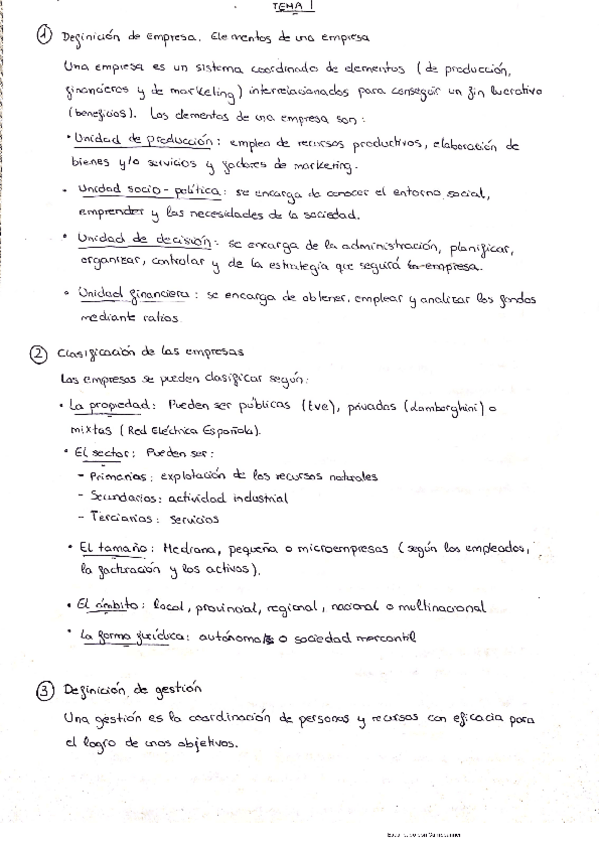 TEMA 1
① Definición de empresa. Elementos de una empresa
Una empresa es un sistema coordinado de elementos (de producción,
financieros y de marketing) interrelacionados para conseguir un fin lucrativo
(beneficios). Los elementos de una empresa son:
• Unidad de producción: empleo de recursos productivos, elaboración de
bienes y/o servicios y factores de marketing.
• Unidad socio-política: se encarga de conocer el entorno social,
emprender y las necesidades de la sociedad.
• Unidad de decisión: se encarga de la administración, planificar,
organizar, controlar y de la estrategia que seguirá empresa.
• Unidad financiera: se encarga de obtener, emplear y analizar los fondos
mediante ratios.
② Clasificación de las empresas
Las empresas se pueden clasificar según:
• La propiedad: Pueden ser públicas (tve), privadas (Lamborghini) o
mixtas (Red Eléctrica Española).
• El sector: Pueden ser:
- Primarias: explotación de los recursos naturales
- Secundarios: actividad industrial
- Terciarias: servicios
• El tamaño: Mediana, pequeña o microempresas (según los empleados,
la facturación y los activos).
• El ámbito: local, provincial, regional, nacional o multinacional
• La forma jurídica: autónomo/s o sociedad mercantil
③ Definición de gestión
Una gestión es la coordinación de personas y recursos con eficacia para
el logro de unos objetivos.